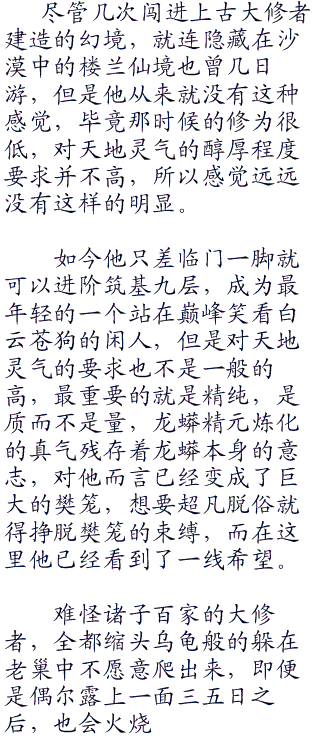 尽管几次闯进上古大修者
建造的幻境，就连隐藏在沙
漠中的楼兰仙境也曾几日
游，但是他从来就没有这种
感觉，毕竟那时候的修为很
低，对天地灵气的醇厚程度
要求并不高，所以感觉远远
没有这样的明显。
如今他只差临门一脚就
可以进阶筑基九层，成为最
年轻的一个站在巅峰笑看白
云苍狗的闲人，但是对天地
灵气的要求也不是一般的
高，最重要的就是精纯，是
质而不是量，龙蟒精元炼化
的真气残存着龙蟒本身的意
志，对他而言已经变成了巨
大的樊笼，想要超凡脱俗就
得挣脱樊笼的束缚，而在这
里他已经看到了一线希望。
难怪诸子百家的大修
者，全都缩头乌龟般的躲在
老巢中不愿意爬出来，即便
是偶尔露上一面三五日之
后，也会火烧